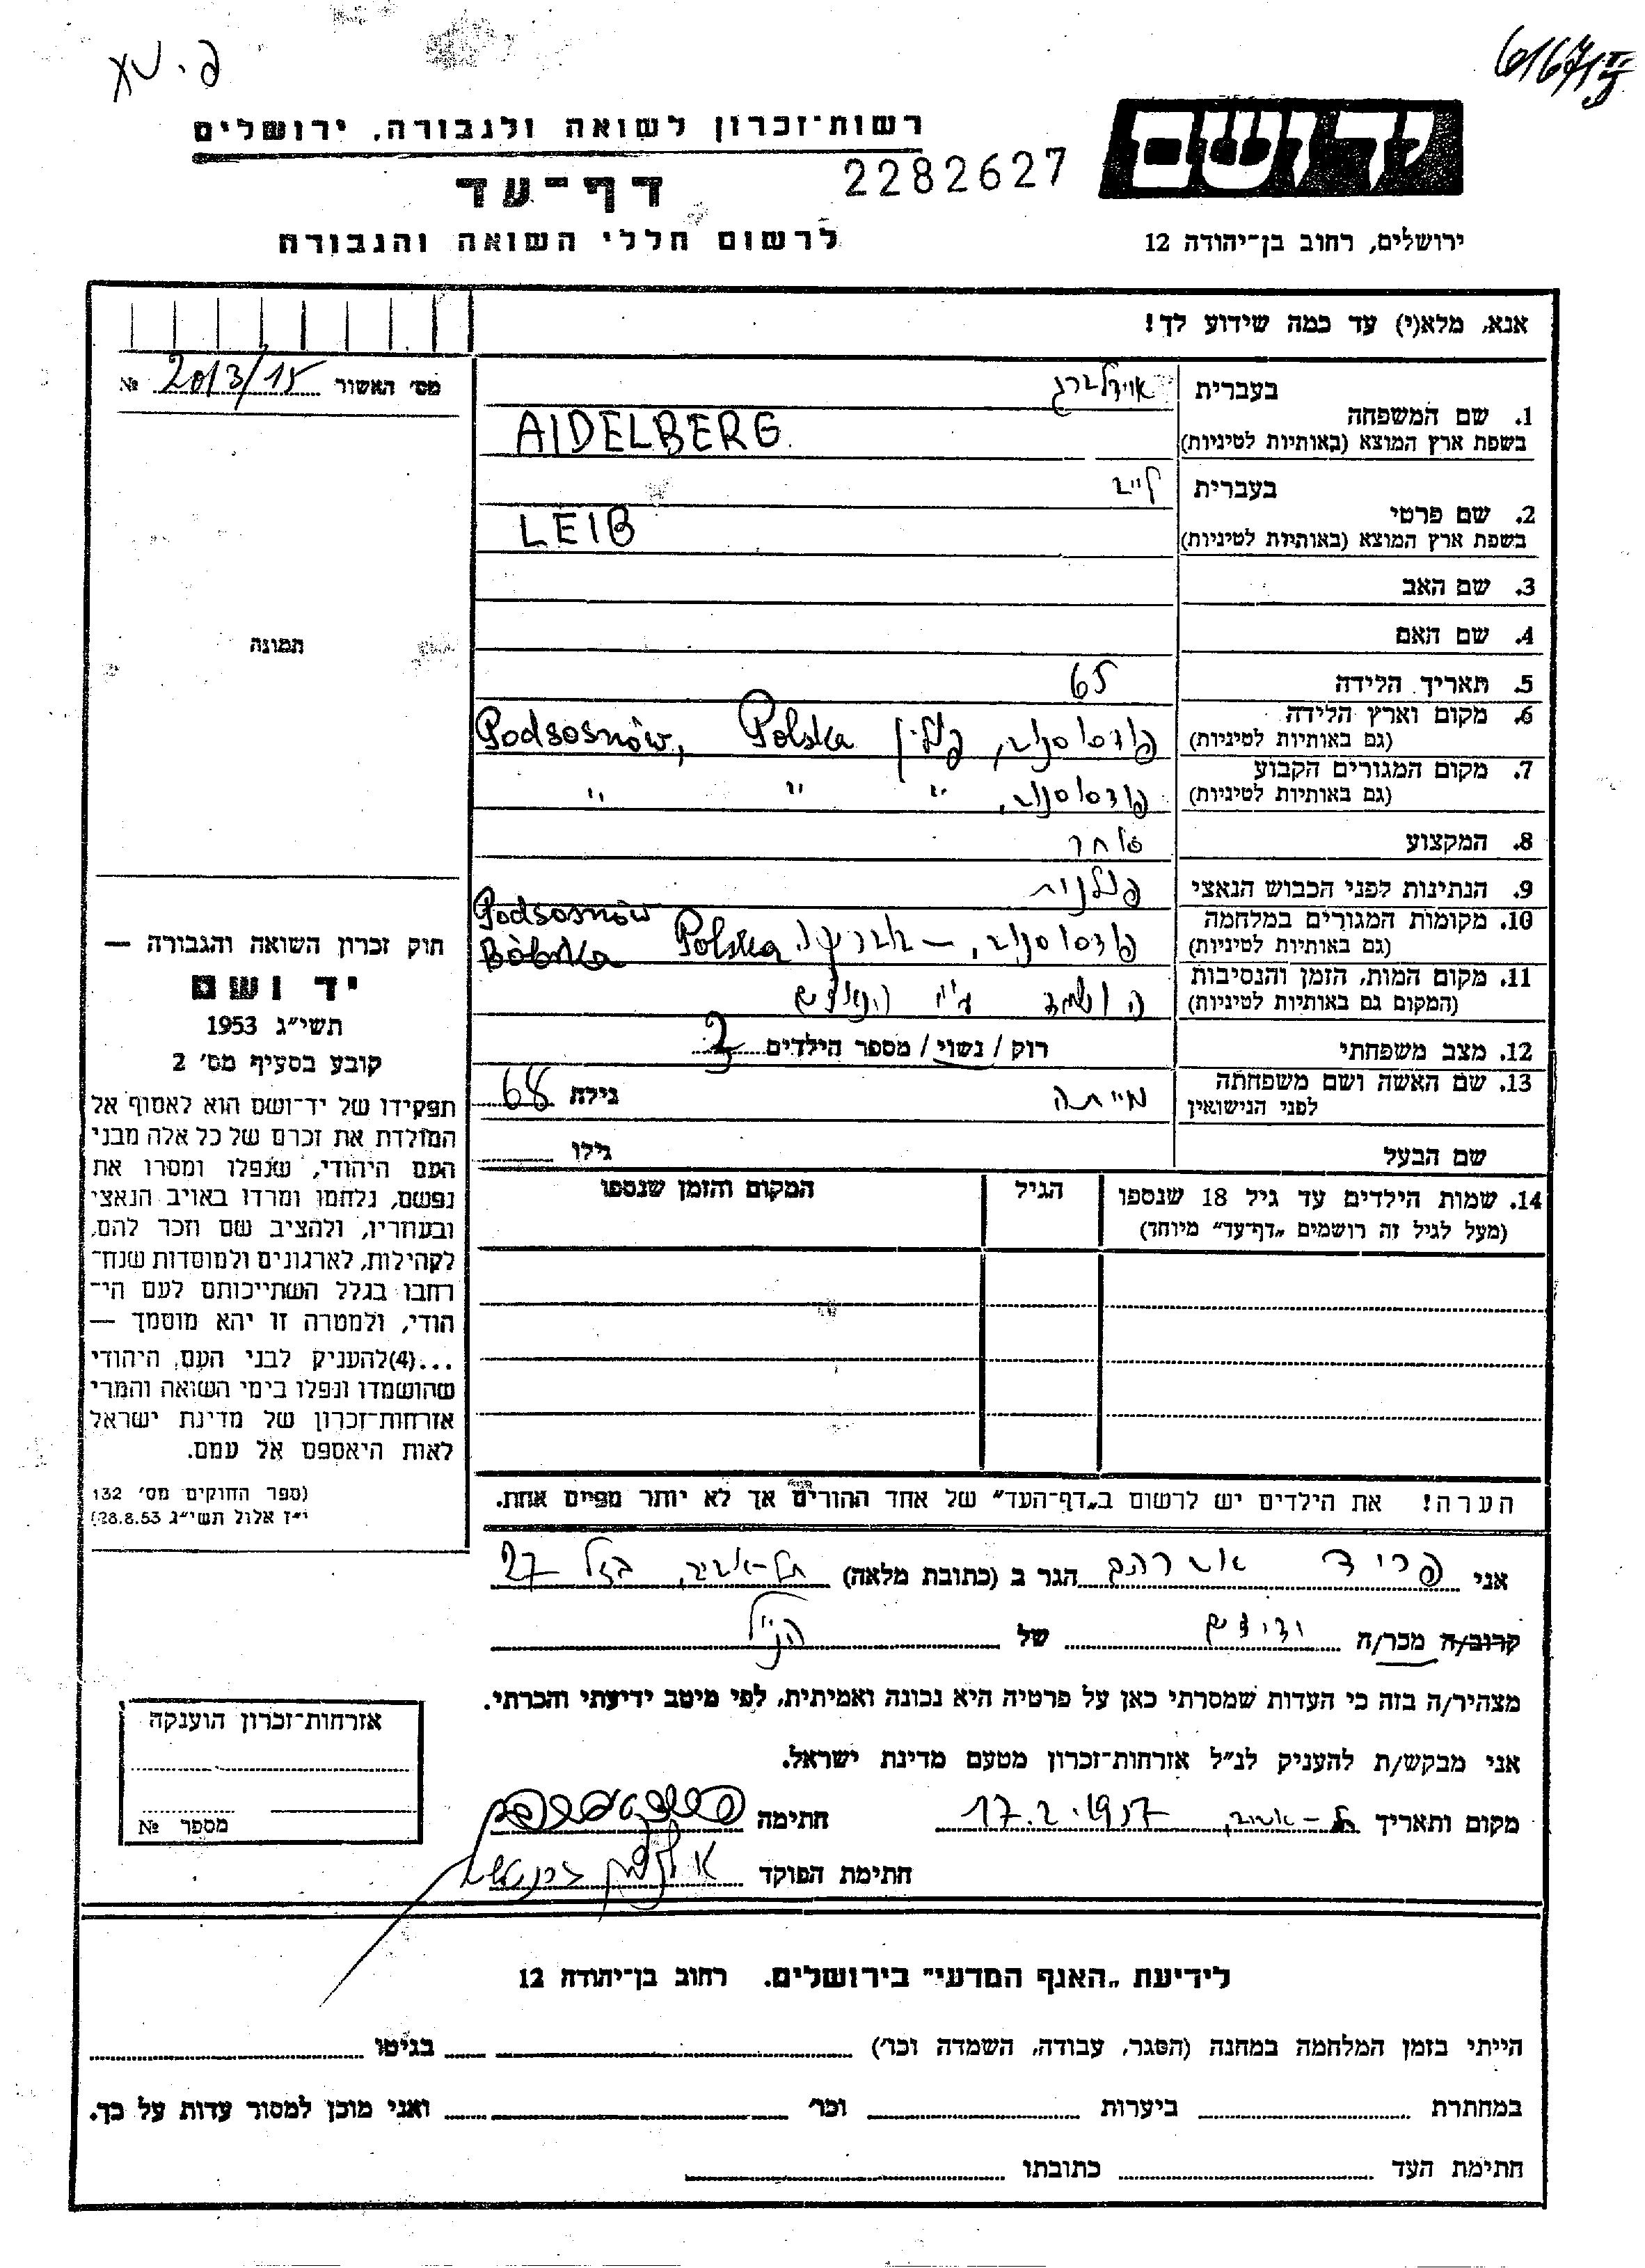 פ. יש
6167/II
רשות־זכרון לשואה ולגבורה, ירושלים
יד ושם
2282627
דף־עד
לרשום חללי השואה והגבורה
ירושלים, רחוב בן־יהודה 12
אנא, מלא(י) עד כמה שידוע לך!
מס׳ האשור 2013/15 №
בעברית אידלברג
1. שם המשפחה
בשפת ארץ המוצא (באותיות לטיניות) AIDELBERG
בעברית לייב
2. שם פרטי
בשפת ארץ המוצא (באותיות לטיניות) LEIB
3. שם האב
4. שם האם
תמונה
5. תאריך הלידה 65
6. מקום וארץ הלידה
(גם באותיות לטיניות) פודסוסנוב, פולין Podsosnów, Polska
7. מקום המגורים הקבוע
(גם באותיות לטיניות) פודסוסנוב, " " "
8. המקצוע סוחר
9. הנתינות לפני הכבוש הנאצי פולנית
10. מקומות המגורים במלחמה
(גם באותיות לטיניות) פודסוסנוב, – בוברקה Podsosnów Bóbrka Polska
11. מקום המות, הזמן והנסיבות
(המקום גם באותיות לטיניות) הושמד ע״י הנאצים
12. מצב משפחתי רוק / נשוי / מספר הילדים 3
13. שם האשה ושם משפחתה
לפני הנישואין מייתה גילה 68
שם הבעל גילו
14. שמות הילדים עד גיל 18 שנספו הגיל המקום והזמן שנספו
(מעל לגיל זה רושמים „דף־עד״ מיוחד)
הערה! את הילדים יש לרשום ב„דף־העד״ של אחד ההורים אך לא יותר מפיים אחת.
חוק זכרון השואה והגבורה —
יד ושם
תשי״ג 1953
קובע בסעיף מס׳ 2
תפקידו של יד־ושם הוא לאסוף אל
המולדת את זכרם של כל אלה מבני
העם היהודי, שנפלו ומסרו את
נפשם, נלחמו ומרדו באויב הנאצי
ובעוזריו, ולהציב שם וזכר להם,
לקהילות, לארגונים ולמוסדות שנח־
רחבו בגלל השתייכותם לעם הי־
הודי, ולמטרה זו יהא מוסמך —
...(4)להעניק לבני העם היהודי
שהושמדו ונפלו בימי השואה והמרי
אזרחות־זכרון של מדינת ישראל
לאות היאספם אל עמם.
(ספר החוקים מס׳ 132
י״ז אלול תשי״ג 28.8.53)
אני פריד אברהם הגר ב (כתובת מלאה) תל-אביב, בזל 27
קרוב/ה מכר/ה ידידים של הנ״ל
מצהיר/ה בזה כי העדות שמסרתי כאן על פרטיה היא נכונה ואמיתית, לפי מיטב ידיעתי והכרתי.
אני מבקש/ת להעניק לנ״ל אזרחות־זכרון מטעם מדינת ישראל.
מקום ותאריך ת–אביב, 17.2.1957 חתימה
חתימת הפוקד
אזרחות־זכרון הוענקה
מספר №
לידיעת „האגף המדעי״ בירושלים. רחוב בן־יהודה 12
הייתי בזמן המלחמה במחנה (הסגר, עבודה, השמדה וכו׳) בגיטו
במחתרת ביערות וכו׳ ואני מוכן למסור עדות על כך.
חתימת העד כתובתו